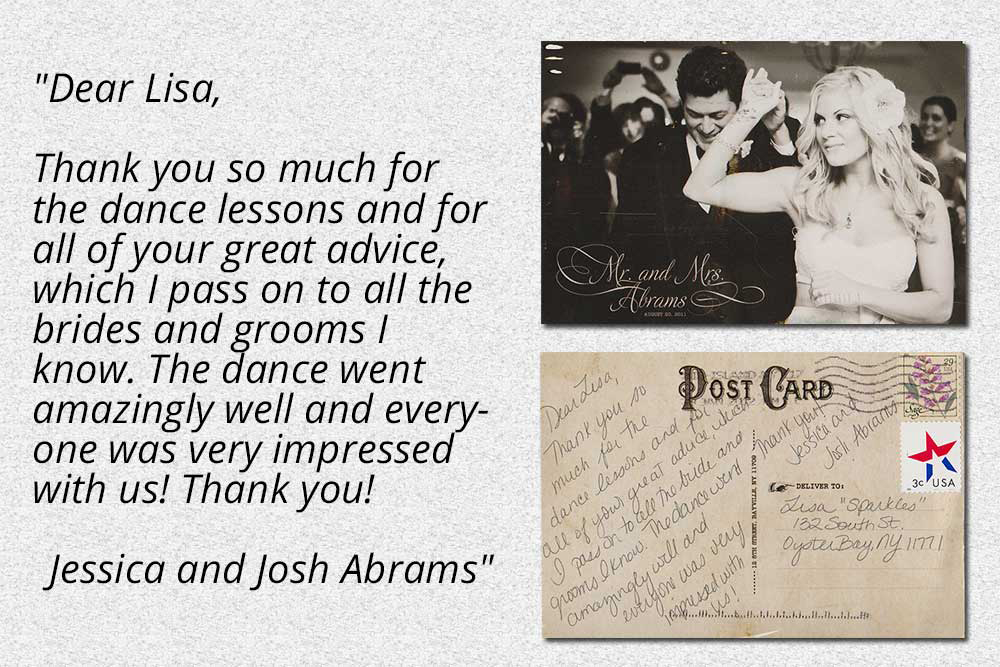 "Dear Lisa,
Thank you so much for
the dance lessons and for
all of your great advice,
which I pass on to all the
brides and grooms I
know. The dance went
amazingly well and every-
one was very impressed
with us! Thank you!
Jessica and Josh Abrams"
Mr. and Mrs.
Abrams
AUGUST 20, 2011
POST CARD
Dear Lisa,
Thank you so
much for the
dance lessons and for
all of your great advice, which
I pass on to all the bride and
grooms I know. The dance went
amazingly well and
everyone was very
impressed with
us!
Thank you!
Jessica and
Josh Abrams
29
3c USA
DELIVER TO:
Lisa "Sparkles"
132 South St.
Oyster Bay, NY 11771